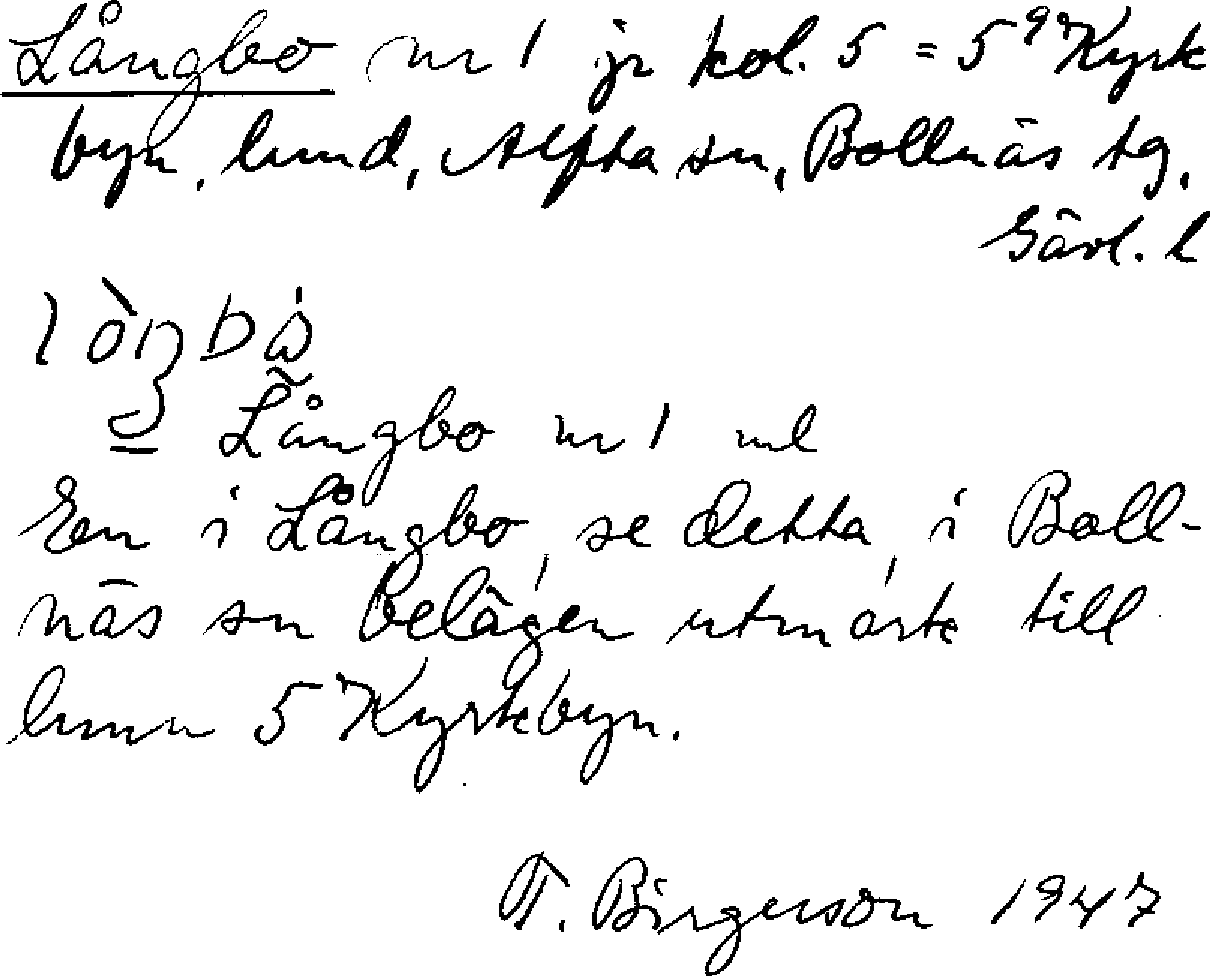 Långbo nr 1 jr kol. 5 = 5⁹ Kyrk
byn, lund, Alfta sn, Bollnäs tg,
Gävl. l
Långbo nr 1 ml
En i Långbo, se detta, i Boll-
näs sn belägen utmark till
lunn 5 Kyrkbyn.
T. Birgerson 1947